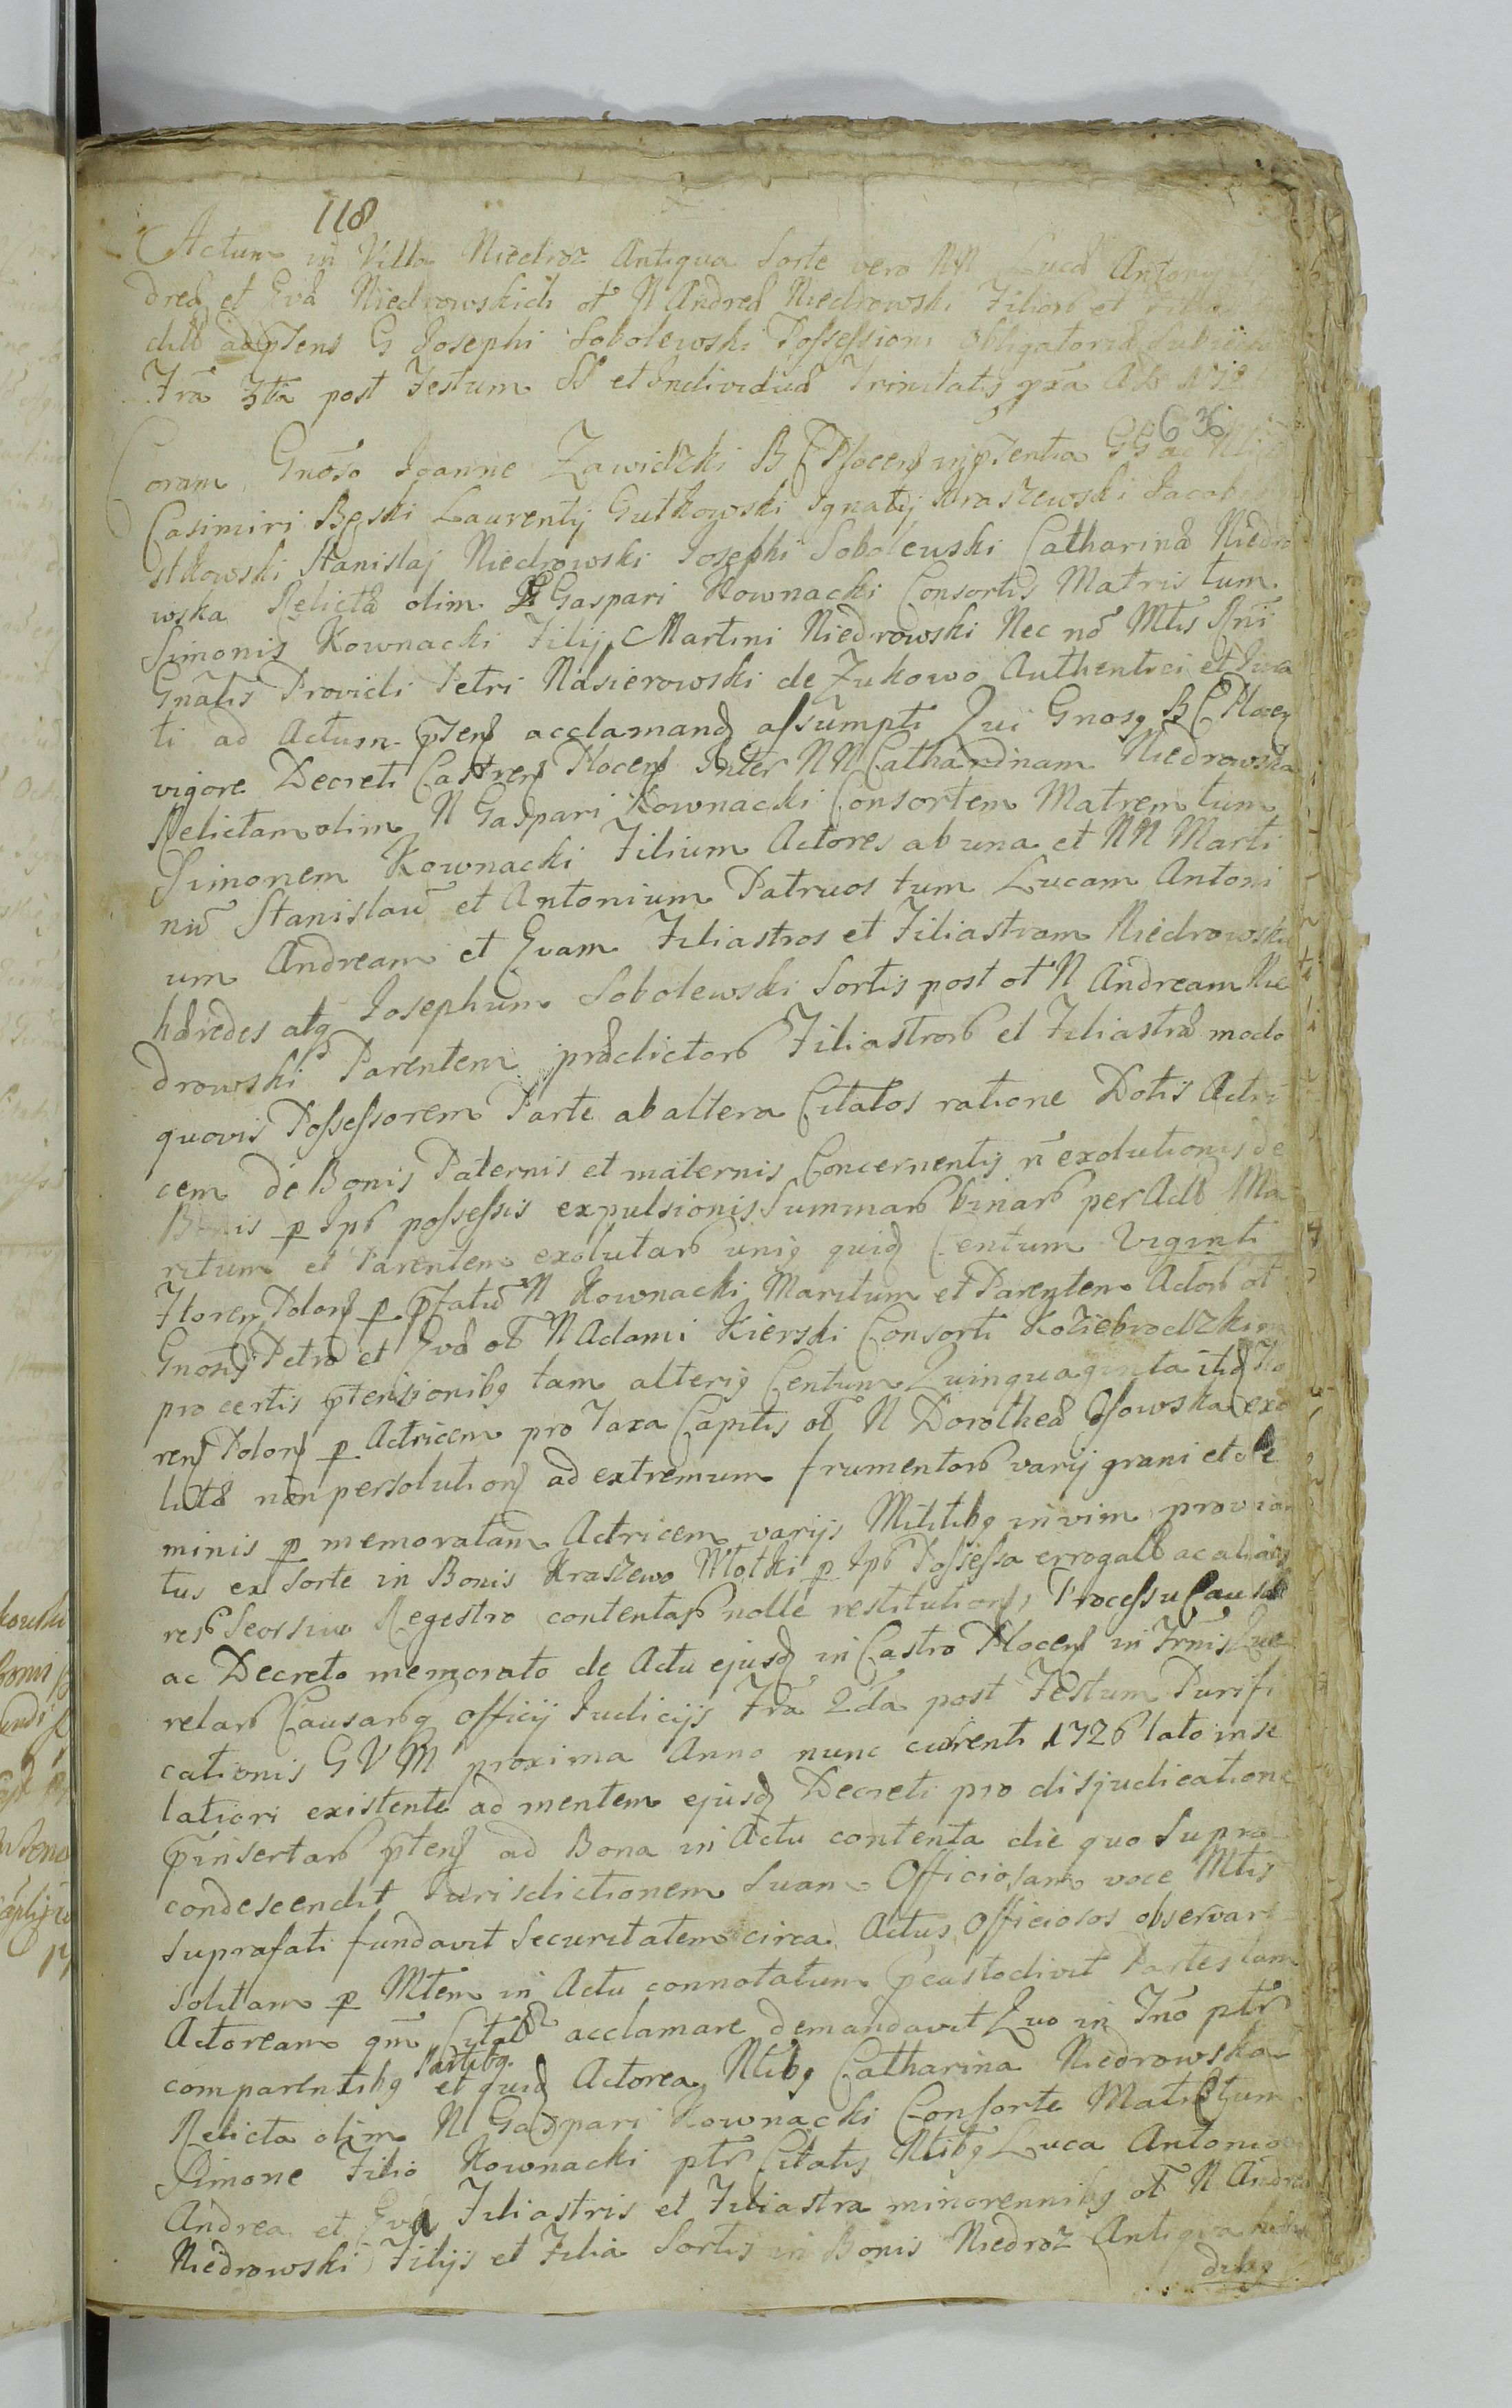 118
Actum in Villa Niedroz Antiqua Sorte vero NN Lucæ Antonij
dreæ et Evæ Niedrowskich ol N Andreæ Niedrowski Filiorb et
dibb ad ptens G Josephi Sobolewski Possessioni obligatoriæ Subiecta
Frã 3tia post Festum SS et Individuæ Trinitatis pxã Ao 1726
636
Coram Gnoso Joanne Zawidzki B C Plocens in ptentia GG ac Nli
Casimiri Bęski Laurentij Gutkowski Ignatij Kraszewski Jacobi
Stkowski Stanislaj Niedrowski Josephi Sobolewski Catharinæ Niedro
wska Relictæ olim G Gaspari Kownacki Consortis Matris tum
Simonis Kownacki Filij Martini Niedrowski Nec nõ Mtis Rni
Gnãlis Providi Petri Nasierowski de Zukowo Authentici et Jura
ti ad Actum ptens acclamandq assumpti Qui Gnosq B C Plocen
vigore Decreti Castrens Plocens Inter NN Catharinam Niedrowska
Relictam olim N Gaspari Kownacki Consortem Matrem tum
Simonem Kownacki Filium Actores ab una et NN Marti
nũ Stanislaũ et Antonium Patruos tum Lucam Antoni
um Andream et Evam Filiastros et Filiastram Niedrowskie
hæredes atq Josephum Sobolewski Sortis post ol N Andream Nie
drowski Parentem prædictorb Filiastrorb et Filiastræ modo
quovis Possessorem Parte ab altera Citatos ratione Dotis Actri
cem de Bonis Paternis et maternis Concernentis ñ exolutionis de
Bonis p Ipb possessis expulsionis Summarb binarb per Actb Ma
ritum et Parentem exolutarb uniq quidq Centum Viginti
Floren Polons p pfatũ N Kownacki Maritum et Parentem Actorb ol
Gnosis Petro et Evæ ol N Adami Kierski Consorti Koziebrodzkim
pro certis ptensionibq tam alteriq Centum Quinquaginta itidq Flo
rens Polons p Actricem pro Taxa Capitis ol N Dorotheæ Osowska exo
lutæ non persolutions ad extremum frumentorb varij grani et ole
minis p memoratam Actricem varijs Militibq in vim provian
tus ex Sorte in Bonis Kraszewo Wlotki p Ipb Possessa errogatb ac aliarq
reb Seorsivo Regestro contentarb nolle restitutions Processu Causæ
ac Decreto memorato de Actu ejusdq in Castro Plocens in Frnis Que
relarb Causarbq Officij Judicijs Frã 2da post Festum Purifi
cationis G V M proxima Anno nunc currenti 1726 lato in se
latiori existente ad mentem ejusdq Decreti pro disjudicatione
pinsertarb ptens ad Bona in Actu contenta die quo Supra
condescendit Jurisdictionem Suam Officiosam voce Mtis
Suprafati fundavit Securitatem circa Actus Officiosos observari
Solitam p Mtem in Actu connotatum pcustodivit Partes tam
Actoream qm Citatb acclamare demandavit Quo in Tno ptr
comparentibq Partibq et quidq Actorea Nlibq Catharina Niedrowska
Relicta olim N Gaspari Kownacki Consorte Matre tum
Simone Filio Kownacki ptr Citatis Nlibq Luca Antonio
Andrea et Eva Filiastris et Filiastra minorennibq ol N Andreæ
Niedrowski Filijs et Filia Sortis in Bonis Niedroz Antiqua hære
dibq